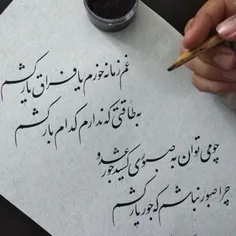 غم زمانه خورم یا فراق یار کشم
به طاقتی که ندارم کدام بار کشم
چو می توان به صبوری کشید جور عدو
چرا صبور نباشم که جور یار کشم